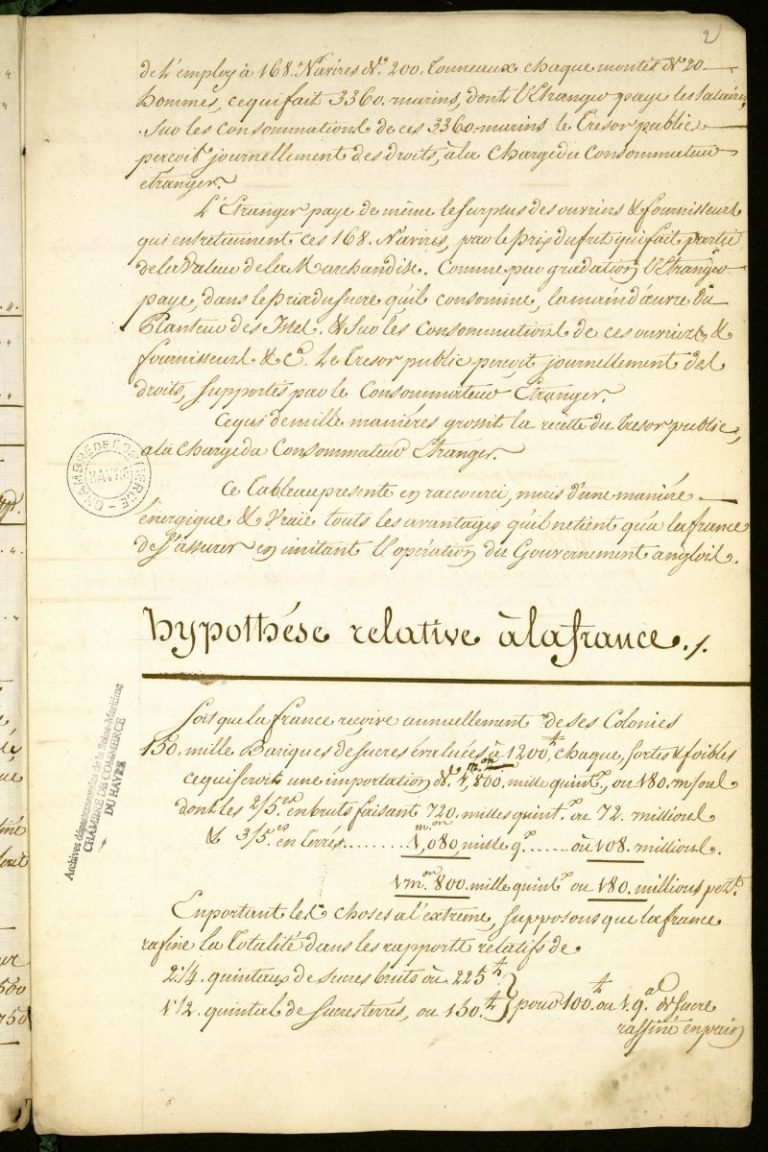 2
de l'employ à 168. Navires de 200. Tonneaux chaque montés de 20
hommes, ce qui fait 3360. marins, dont l'Etranger paye les salaires,
Sur les consommations de ces 3360 marins le Tresor public
perçoit journellement des droits, à la Charge du Consommateur
etranger.
L'Etranger paye de même le surplus des ouvriers & fournisseurs
qui entretiennent ces 168. Navires, par le prix du fret qui fait partie
de la Valeur de la Marchandise. Comme par gradation l'Etranger
paye, dans le prix du sucre qu'il consomme, la main d'œuvre du
Planteur des Isles. & Sur les Consommations de ces ouvriers &
fournisseurs & ca. Le Tresor public perçoit journellement des
droits, supportés par le Consommateur Etranger.
Ce qui de mille manières grossit la recette du Tresor public,
a la Charge du Consommateur Etranger.
Ce Tableau presente en raccourci, mais d'une manière
énergique & vraie touts les avantages qu'il ne tient qu'a la france
de s'assurer en imitant l'opération du Gouvernement anglois.
hypothése relative à la france. /.
Lors que la france reçoive annuellement de ses Colonies
150. mille Bariques de sucres évaluées à 1200 tt chaque, fortes & foibles
ce qui seroit une importation de 1, mon 800, mille quintx, ou 180. m
dont les 2/5.es en bruts faisant 720. milles quintx ou 72. millions
& 3/5.es en Terrés........ 1, mon 080, mille qx...... ou 108. millions.
1 mon. 800. mille quintx ou 180. millions pezt.
En portant les choses a l'extrême, supposons que la france
rafine la Totalité dans les rapports relatifs de
2 1/4. quintaux de sucres bruts ou 225 tt
1 1/2. quintal de sucres terrés, ou 150. tt } pour 100 tt ou 1. qal de sucre
raffiné en pain
CHAMBRE DE COMMERCE
HAVRE
Archives départementales de la Seine-Maritime
CHAMBRE DE COMMERCE
DU HAVRE